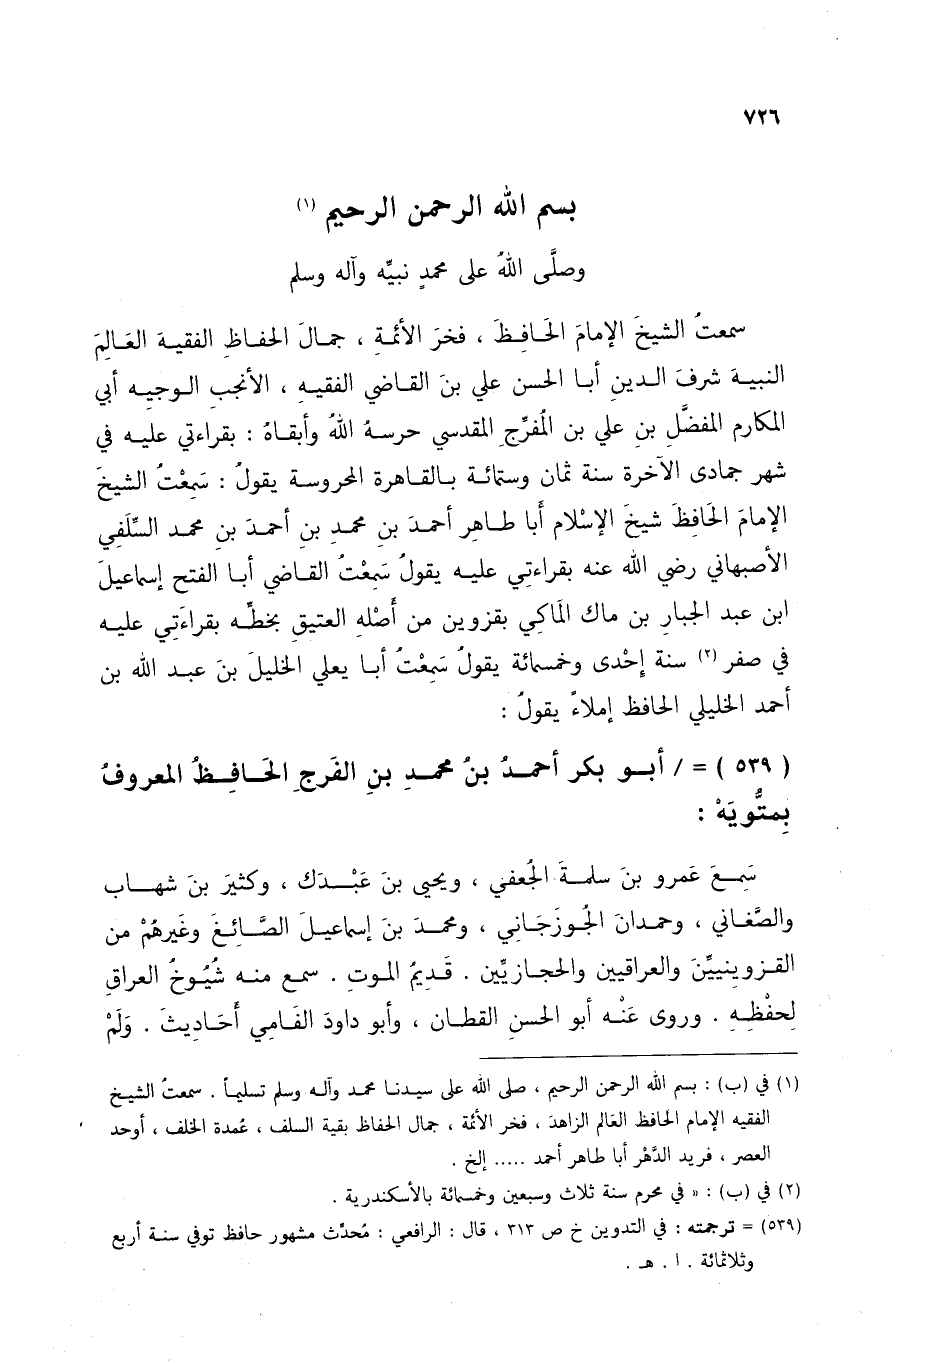 ٧٢٦
بسم الله الرحمن الرحيم (١)
وصلَّى اللهُ على محمدٍ نبيِّه وآله وسلم
سمعتُ الشيخَ الإمامَ الحَافِظَ ، فخرَ الأئمةِ ، جمالَ الحفاظِ الفقيهَ العَالِمَ
النبيهَ شرفَ الدين أبا الحسن علي بنَ القاضي الفقيه ، الأنجب الوجيه أبي
المكارم المفضَّل بن علي بن المُفرِّج المقدسي حرسهُ اللهُ وأبقاهُ : بقراءتي عليه في
شهر جمادى الآخرة سنة ثمان وستمائة بالقاهرة المحروسة يقولُ : سَمِعْتُ الشيخَ
الإمامَ الحَافِظَ شيخَ الإسْلام أَبا طاهِر أحمدَ بن محمدِ بن أحمدَ بن محمد السِّلَفي
الأصبهاني رضي الله عنه بقراءتي عليه يقولُ سَمِعْتُ القاضي أبا الفتح إسماعيلَ
ابن عبد الجبارِ بن ماك المَاكي بقزوين من أَصْلهِ العتيقِ بخطِّه بقراءَتي عليه
في صفر (٢) سنة إِحْدى وخمسمائة يقولُ سَمِعْتُ أبا يعلي الخليلَ بنَ عبد الله بن
أحمد الخليلي الحافظ إملاءً يقولُ :
( ٥٣٩ ) = / أبو بكر أحمدُ بنُ محمدِ بنِ الفَرجِ الحَافظُ المعروفُ
بِمتُّويَهْ :
سَمِعَ عَمرو بنَ سلمةَ الجُعفي ، ويحيى بنَ عَبْدَك ، وكثيرَ بنَ شهاب
والصَّغاني ، وحمدانَ الجُوزجَاني ، ومحمدَ بنَ إسماعيلَ الصَّائغَ وغَيرهُمْ من
القزوينيِّنَ والعراقيين والحجازيِّين . قَديمُ الموت . سمع منه شُيُوخُ العراقِ
لحفْظِه . وروى عَنْه أبو الحسنِ القطان ، وأبو داودَ الفَامي أَحَاديثَ . وَلَمْ
(١) في (ب) : بسم الله الرحمن الرحيم ، صلى الله على سيدنا محمد وآله وسلم تسليماً . سمعتُ الشيخ
الفقيه الإمام الحافظ العَالم الزاهدَ ، فخر الأئمة ، جمال الحفاظ بقية السلف ، عُمدة الخلف ، أوحد
العصر ، فريد الدَّهْر أبا طاهر أحمد ..... إلخ .
(٢) في (ب) : « في محرم سنة ثلاث وسبعين وخمسمائة بالأسكندرية .
(٥٣٩) = ترجمته : في التدوين خ ص ٣١٣ ، قال : الرافعي : مُحدِّث مشهور حافظ توفي سنة أربع
وثلاثمائة . ا . هـ .